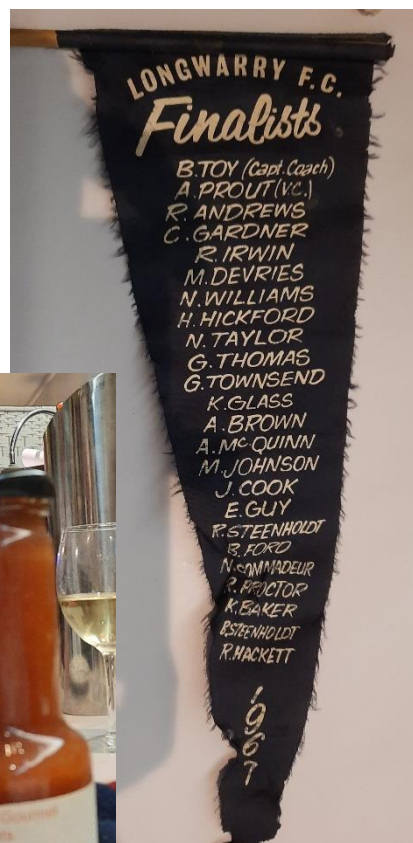 LONGWARRY F.C.
Finalists
B. TOY (Capt. Coach)
A. PROUT (V.C.)
R. ANDREWS
C. GARDNER
R. IRWIN
M. DEVRIES
N. WILLIAMS
H. HICKFORD
N. TAYLOR
G. THOMAS
G. TOWNSEND
K. GLASS
A. BROWN
A. Mc QUINN
M. JOHNSON
J. COOK
E. GUY
R. STEENHOLDT
B. FORD
N. SOMMADEUR
R. PROCTOR
K. BAKER
B. STEENHOLDT
R. HACKETT
1967
Gourmet